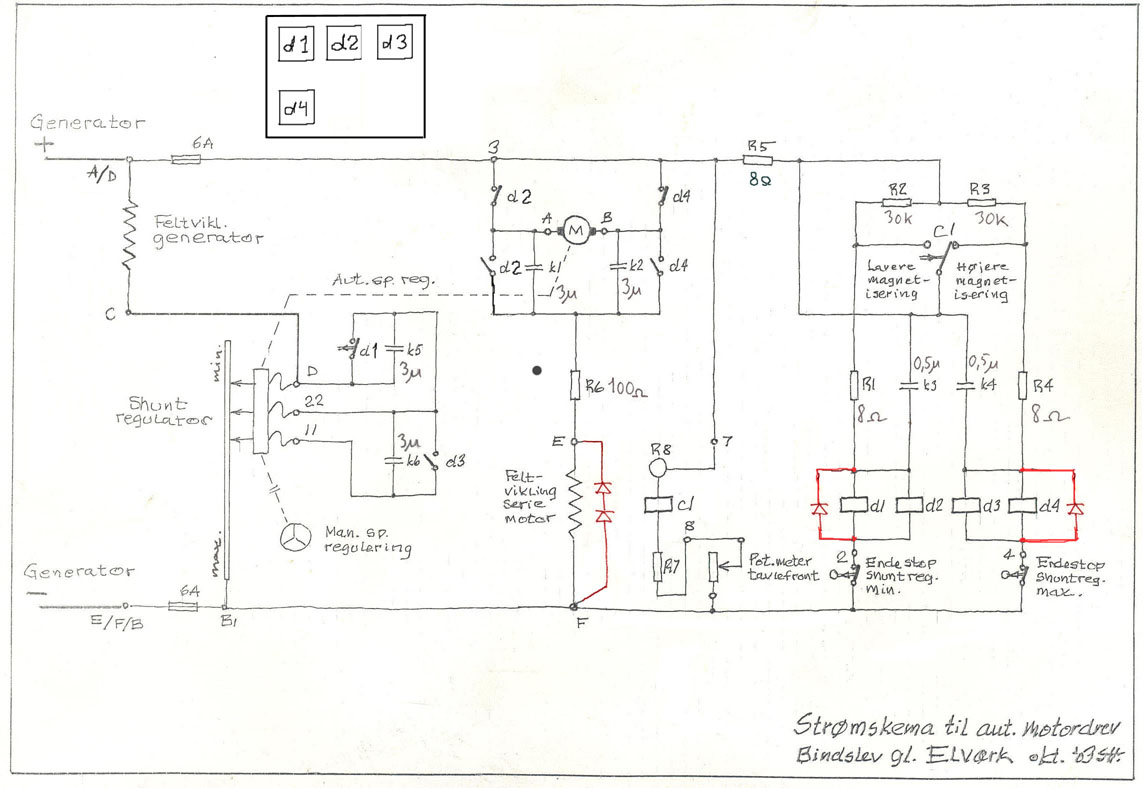 d1 d2 d3
d4
Generator
+
A/D
6A
3
R5
8Ω
d2
A
M
B
d4
R2
30k
R3
30k
C1
Feltvikl.
generator
d2
k1
3μ
k2
3μ
d4
Lavere
magnet-
isering
Højere
magnet-
isering
Aut. sp. reg.
C
min.
D
d1
k5
3μ
22
11
Shunt
regulator
3μ
k6
d3
R6 100Ω
R1
8Ω
0,5μ
k3
0,5μ
k4
R4
8Ω
E
7
R8
Felt-
vikling
serie
motor
C1
8
R7
d1
d2
d3
d4
max.
Man. sp.
regulering
Pot.meter
tavlefront
2
Endestop
shuntreg.
min.
4
Endestop
shuntreg.
max.
Generator
−
E/F/B
6A
B1
F
Strømskema til aut. motordrev
Bindslev gl. Elværk okt. '03